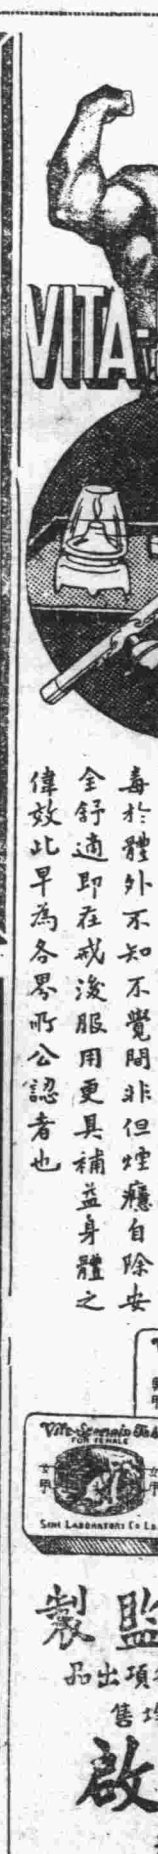 VITA-
毒於體外不知不覺間非但煙癮自除安
全舒適即在戒後服用更具補益身體之
偉效此早為各界所公認者也
Vita-Spermin Tab
FOR FEMALE
女用
SINE LABORATORY Co Ld
監
製
項
出品
售
啟